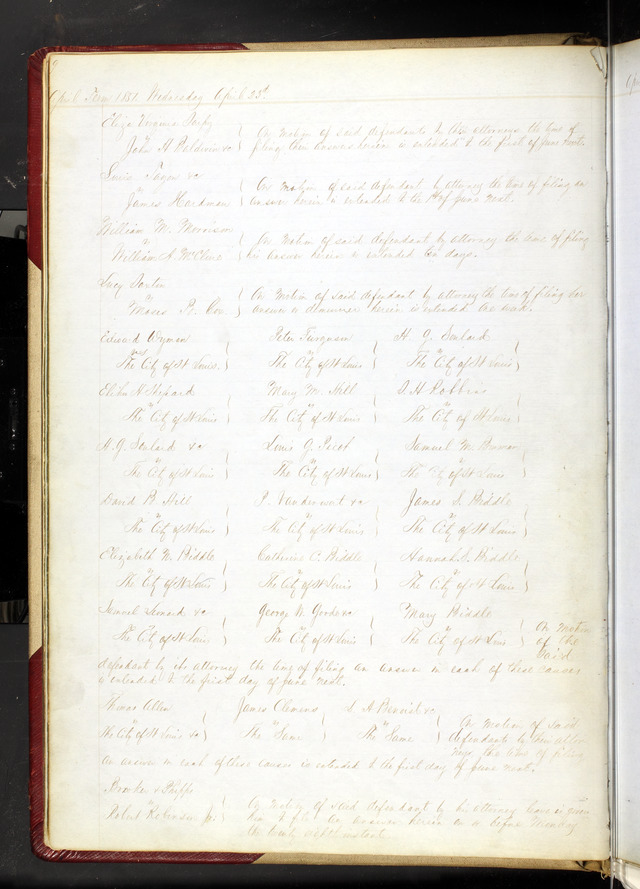 April Term 1851 Wednesday April 23d
Eliza Virginia
John H. Baldwin &c } On motion of said defendants by their attorneys the time of
filing their answer herein is extended to the first of June next.
Louis &c
vs
James Hardman } On motion of said defendant by attorney the time of filing an
answer herein is extended to the 1st of June next.
William M. Morrison
vs
William A. McClure } On motion of said defendant by attorney the time of filing
his answer herein is extended ten days.
Lucy
vs
Moses } On motion of said defendant by attorney the time of filing her
answer or demurrer herein is extended one week.
Edward Wyman Peter Ferguson H. G. Soulard
vs vs vs
The City of St Louis } The City of St Louis } The City of St Louis }
Elihu H. Shepard Mary M. Hill S. H. Robbins
vs vs vs
The City of St Louis } The City of St Louis } The City of St Louis }
H. G. Soulard &c Louis G. Picot Samuel M.
vs vs vs
The City of St Louis } The City of St Louis } The City of St Louis }
David B. Hill P. Vandervoort &c James S. Biddle
vs vs vs
The City of St Louis } The City of St Louis } The City of St Louis }
Elizabeth N. Biddle Catherine C. Biddle Hannah S. Biddle
vs vs vs
The City of St Louis } The City of St Louis } The City of St Louis }
&c George N. &c Mary Biddle
vs vs vs
The City of St Louis } The City of St Louis } The City of St Louis } On motion
of the
said
defendant by its attorney the time of filing an answer in each of these causes
is extended to the first day of June next.
Thomas Allen James Clemens L. A. Benoist &c
vs vs vs
The City of St Louis &c } The Same } The Same } On motion of said
defendants by their attor
neys, the time of filing
an answer in each of these causes is extended to the first day of June next.
Brooke & Phipps
vs
Robert Robinson Jr. } On motion of said defendant by his attorney leave is given
him to file an answer herein on or before Monday
the twenty eighth instant.